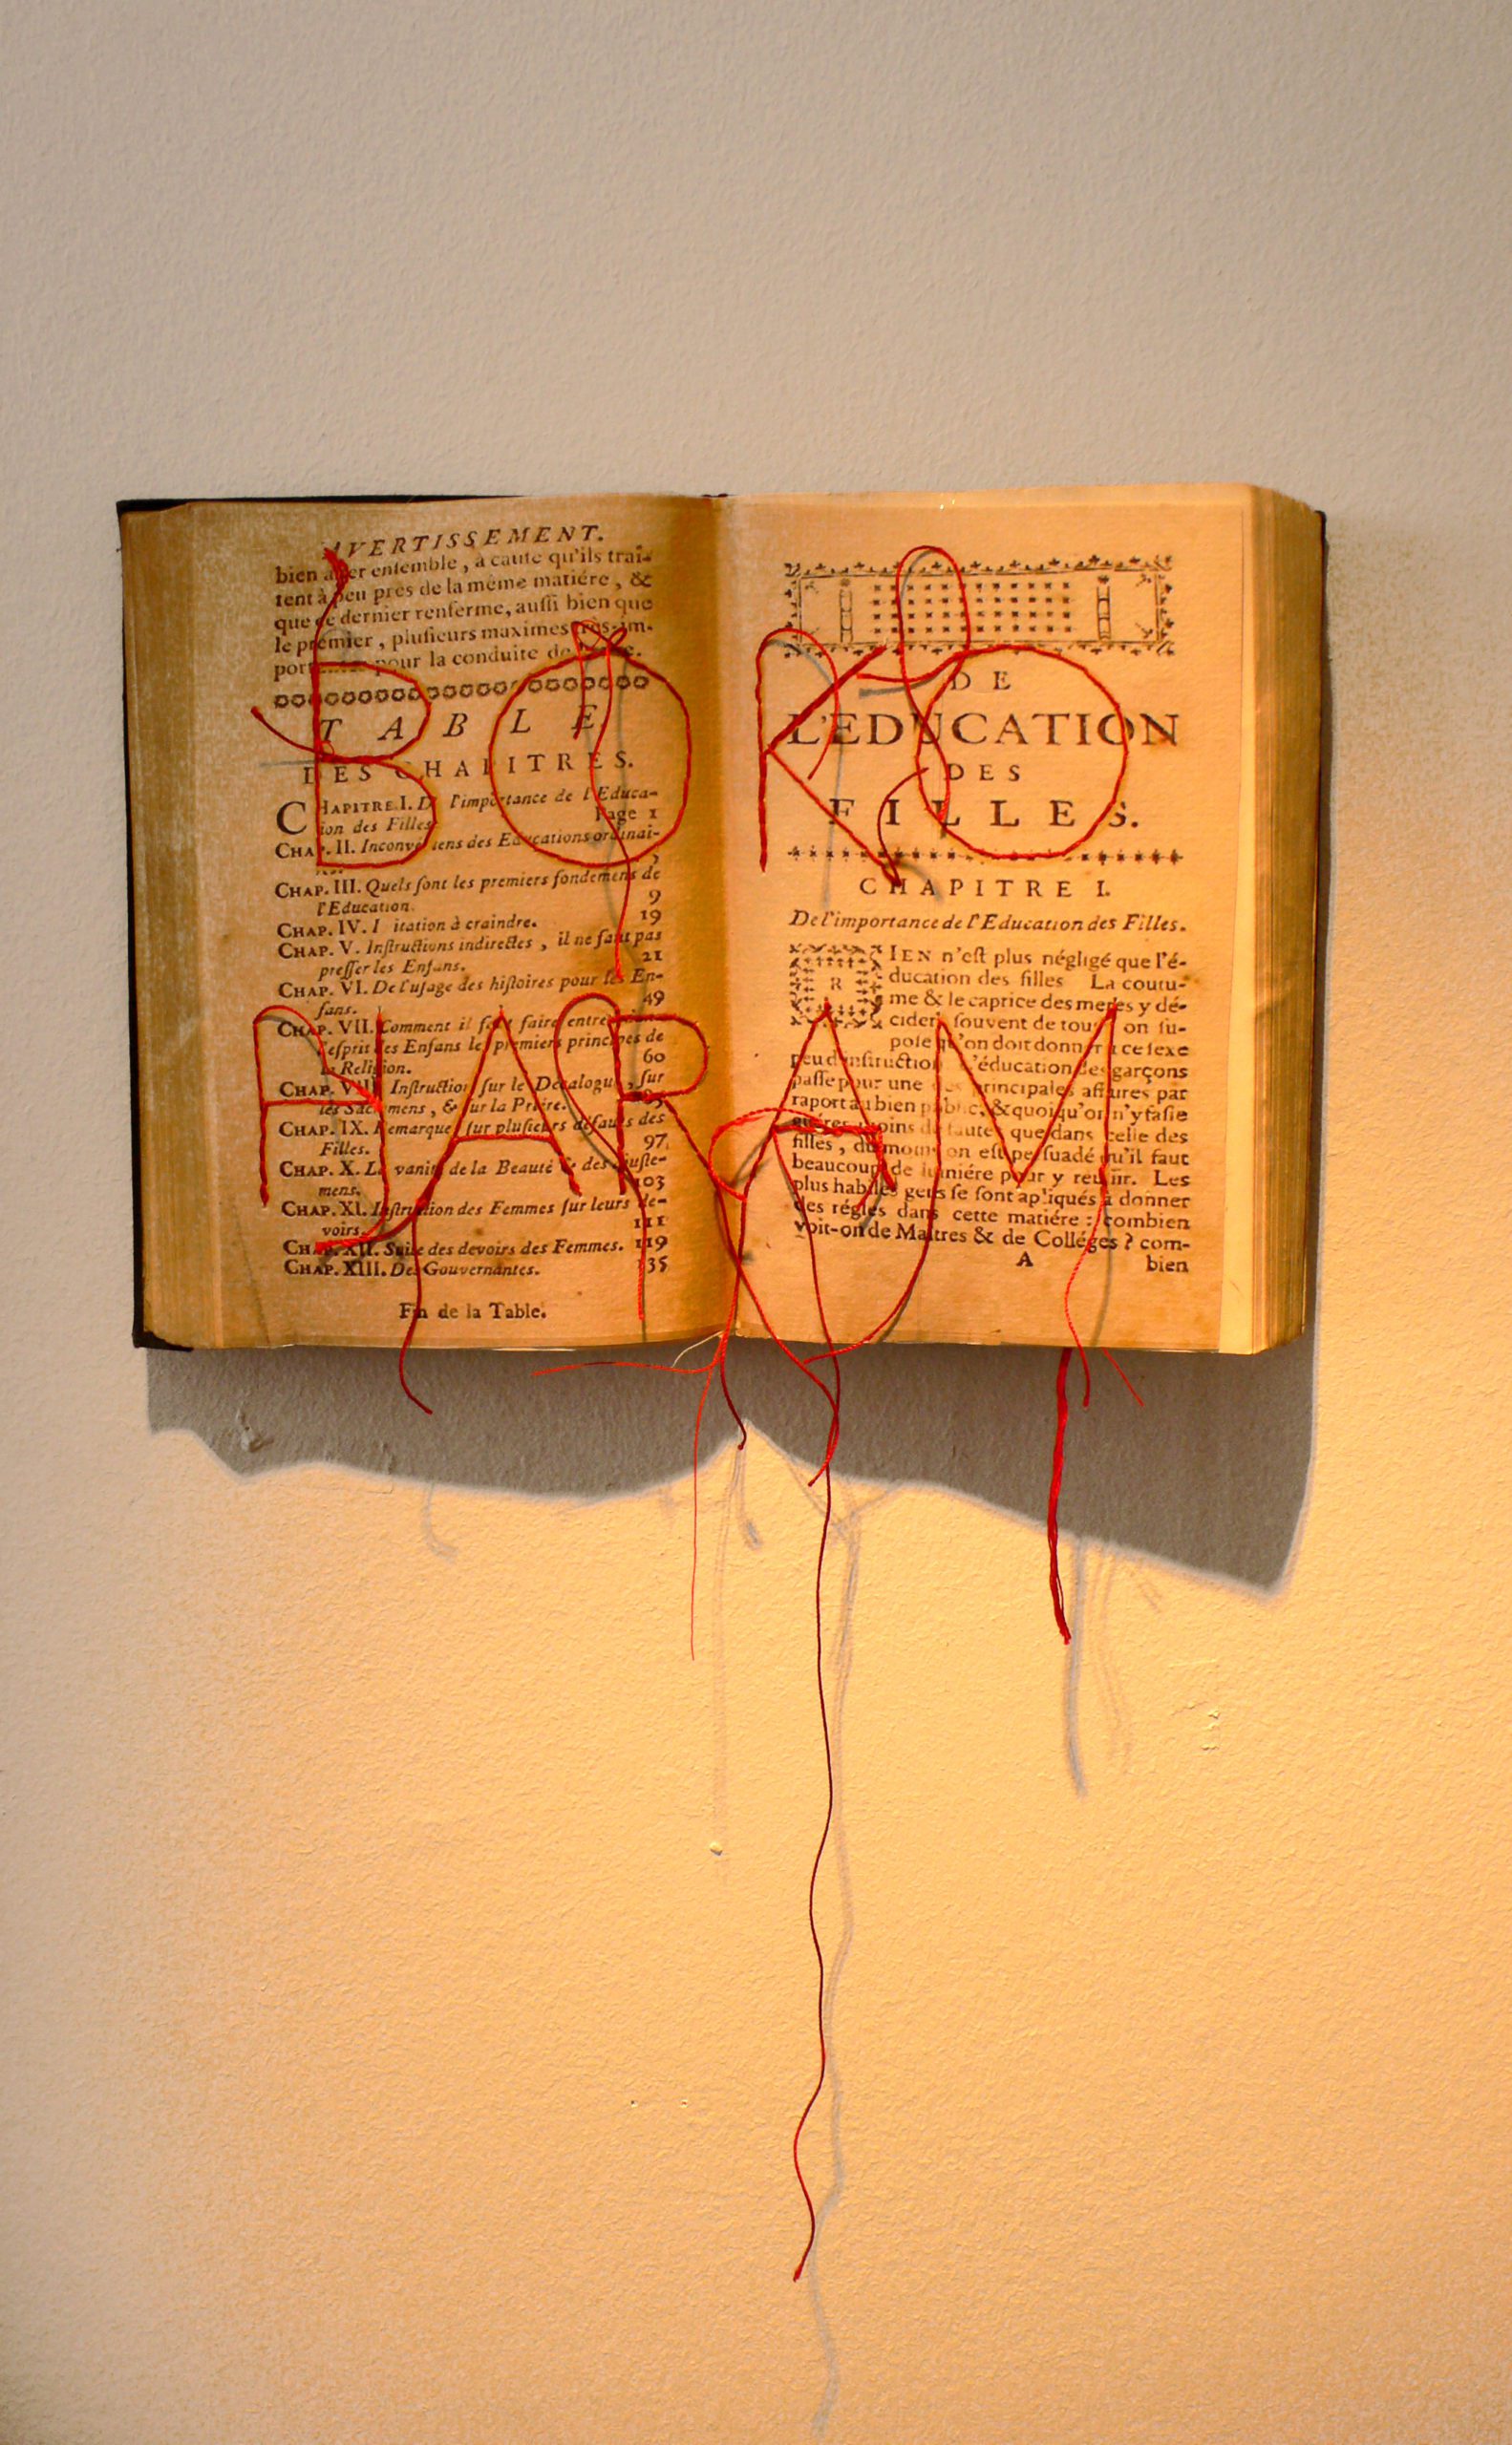 AVERTISSEMENT.
bien aller enſemble, à cauſe qu'ils trai-
tent à peu près de la même matiére, &
que ce dernier renferme, auſſi bien que
le premier, pluſieurs maximes très-im-
portantes pour la conduite de
TABLE
DES CHAPITRES.
CHAPITRE I. De l'importance de l'Educa-
tion des Filles Page 1
CHAP. II. Inconveniens des Educations ordinai-
CHAP. III. Quels ſont les premiers fondemens de
l'Education. 9
CHAP. IV. I itation à craindre. 19
CHAP. V. Inſtructions indirectes, il ne faut pas
preſſer les Enfans. 21
CHAP. VI. De l'uſage des hiſtoires pour les En-
fans. 49
CHAP. VII. Comment il faut faire entrer
l'eſprit des Enfans les premiers principes de
la Religion. 60
CHAP. VIII. Inſtruction ſur le Décalogue, ſur
les Sacremens, & ſur la Priére.
CHAP. IX. Remarques ſur pluſieurs défauts des
Filles. 97
CHAP. X. La vanité de la Beauté & des Ajuſte-
mens. 103
CHAP. XI. Inſtruction des Femmes ſur leurs de-
voirs. 111
CHAP. XII. Suite des devoirs des Femmes. 119
CHAP. XIII. Des Gouvernantes. 135
Fin de la Table.
DE
L'EDUCATION
DES
FILLES.
CHAPITRE I.
De l'importance de l'Education des Filles.
RIEN n'eſt plus négligé que l'é-
ducation des filles La coutu-
me & le caprice des meres y dé-
cident ſouvent de tout on ſu-
poſe qu'on doit donner à ce ſexe
peu d'inſtruction L'éducation des garçons
paſſe pour une des principales affaires par
raport au bien public, & quoiqu'on n'y faſſe
guéres moins de fautes que dans celle des
filles, du moins on eſt perſuadé qu'il faut
beaucoup de lumiére pour y reuſſir. Les
plus habiles gens ſe ſont apliqués à donner
des régles dans cette matiére : combien
voit-on de Maîtres & de Colléges ? com-
A bien
BOKO
HARAM